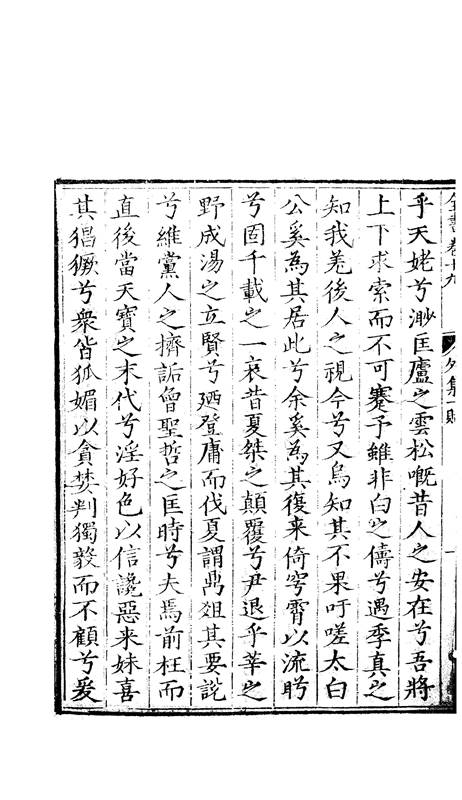 全書卷十九 外集一賦 一
乎天姥兮渺匡廬之雲松嘅昔人之安在兮吾將
上下求索而不可蹇予雖非白之儔兮遇季真之
知我羌後人之視今兮又烏知其不果吁嗟太白
公奚為其居此兮余奚為其復来倚穹霄以流盻
兮固千載之一哀昔夏桀之顛覆兮尹退乎莘之
野成湯之立賢兮廼登庸而伐夏謂鼎俎其要說
兮維黨人之擠詬曾聖哲之匡時兮夫焉前枉而
直後當天寶之末代兮淫好色以信讒惡来妹喜
其猖獗兮衆皆狐媚以貪婪判獨毅而不顧兮爰